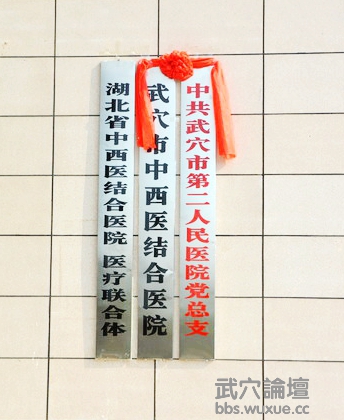 中共武穴市第二人民医院党总支
武穴市中西医结合医院
湖北省中西医结合医院 医疗联合体
武穴論壇
bbs.wuxue.cc